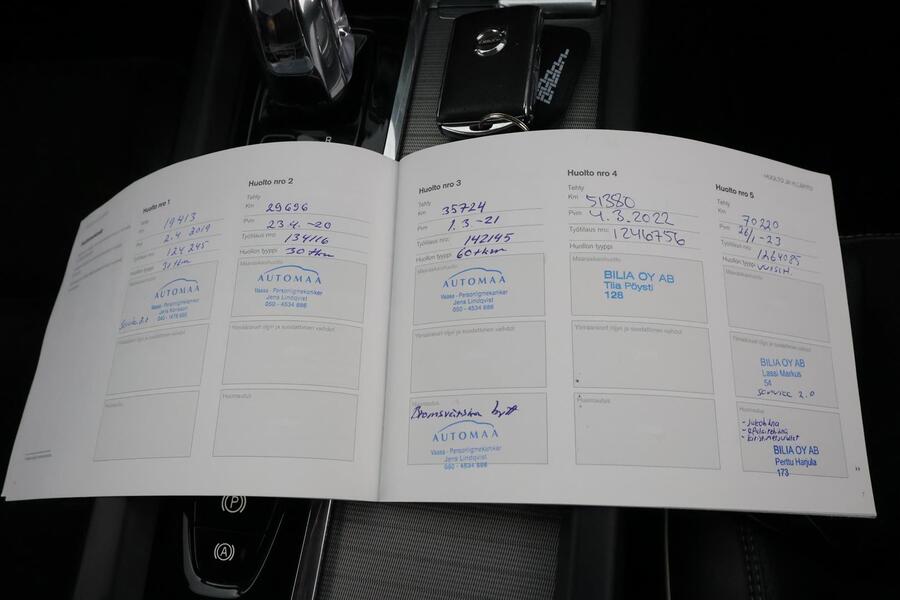 HUOLTO JA YLLÄPITO
Huolto nro 1
Tehty
Km 19413
Pvm 2.4 2019
Työtilaus nro: 124245
Huollon tyyppi
AUTOMAA
Vaasa - Personligmekaniker
Service 2.0
Huolto nro 2
Tehty
Km 29696
Pvm 23.4.-20
Työtilaus nro: 134116
Huollon tyyppi 30 tkm
AUTOMAA
Vaasa - Personligmekaniker
Jens Lindqvist
050 - 4534 686
Ylimääräiset öljyn ja suodattimen vaihdot
Huomautus
Huolto nro 3
Tehty
Km 35724
Pvm 1.3-21
Työtilaus nro: 142145
Huollon tyyppi 60 tkm
Määräaikaishuolto
AUTOMAA
Vaasa - Personligmekaniker
Jens Lindqvist
050 - 4534 686
Ylimääräiset öljyn ja suodattimen vaihdot
Huomautus
Bromsvätska bytt
AUTOMAA
Vaasa - Personligmekaniker
Jens Lindqvist
050 - 4534 686
Huolto nro 4
Tehty
Km 51380
Pvm 4.3.2022
Työtilaus nro: 1246756
Huollon tyyppi
Määräaikaishuolto
BILIA OY AB
Tiia Pöysti
128
Ylimääräiset öljyn ja suodattimen vaihdot
Huomautus
Huolto nro 5
Tehty
Km 70220
Pvm 26/1-23
Työtilaus nro: 1264085
Huollon tyyppi
Määräaikaishuolto
Ylimääräiset öljyn ja suodattimen vaihdot
BILIA OY AB
Lassi Markus
54
service 2.0
Huomautus
BILIA OY AB
Perttu Harjula
173
7
P
A